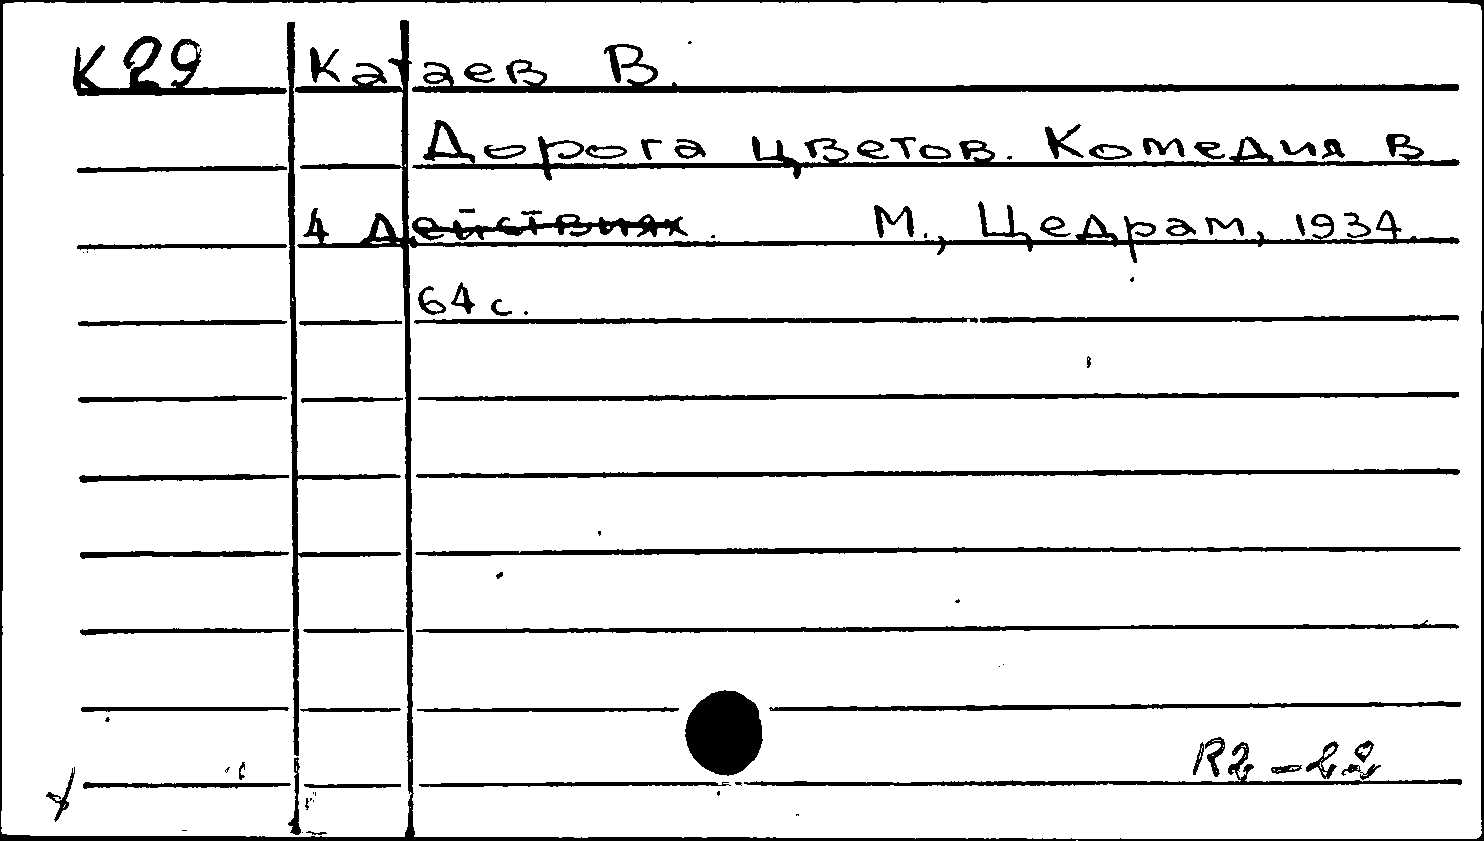 К29 Катаев В.
Дорога цветов. Комедия в
4 действиях. М., Цедрам, 1934.
64 с.
R2-22